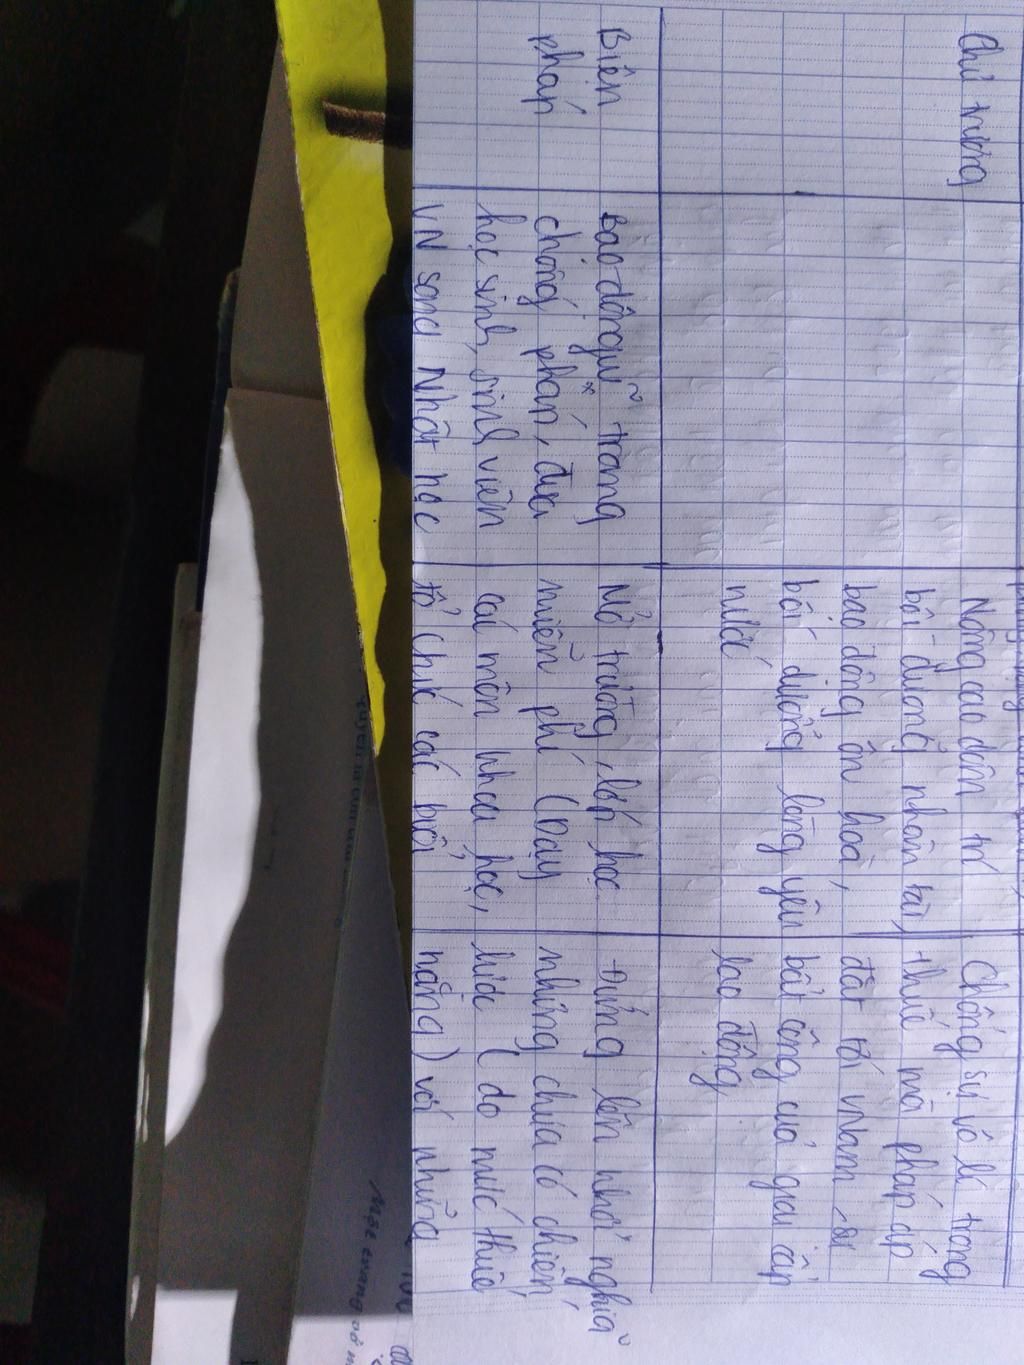 Chủ trương
Nâng cao dân trí
bồi dưỡng nhân tài,
bạo động ôn hoà,
bồi dưỡng lòng yêu
nước
Chống sự vô lí trong
thuế mà pháp áp
đặt tới VNam, sự
bất công của giai cấp
lao động
Biện
pháp
Bạo động vũ trang
chống pháp, đưa
học sinh, sinh viên
VN sang Nhật học
Mở trường, lớp học
miễn phí (Dạy
các môn khoa học,
tổ chức các buổi
Đứng lên khởi nghĩa
nhưng chưa có chiến
lược (do mức thuế
nặng) với những